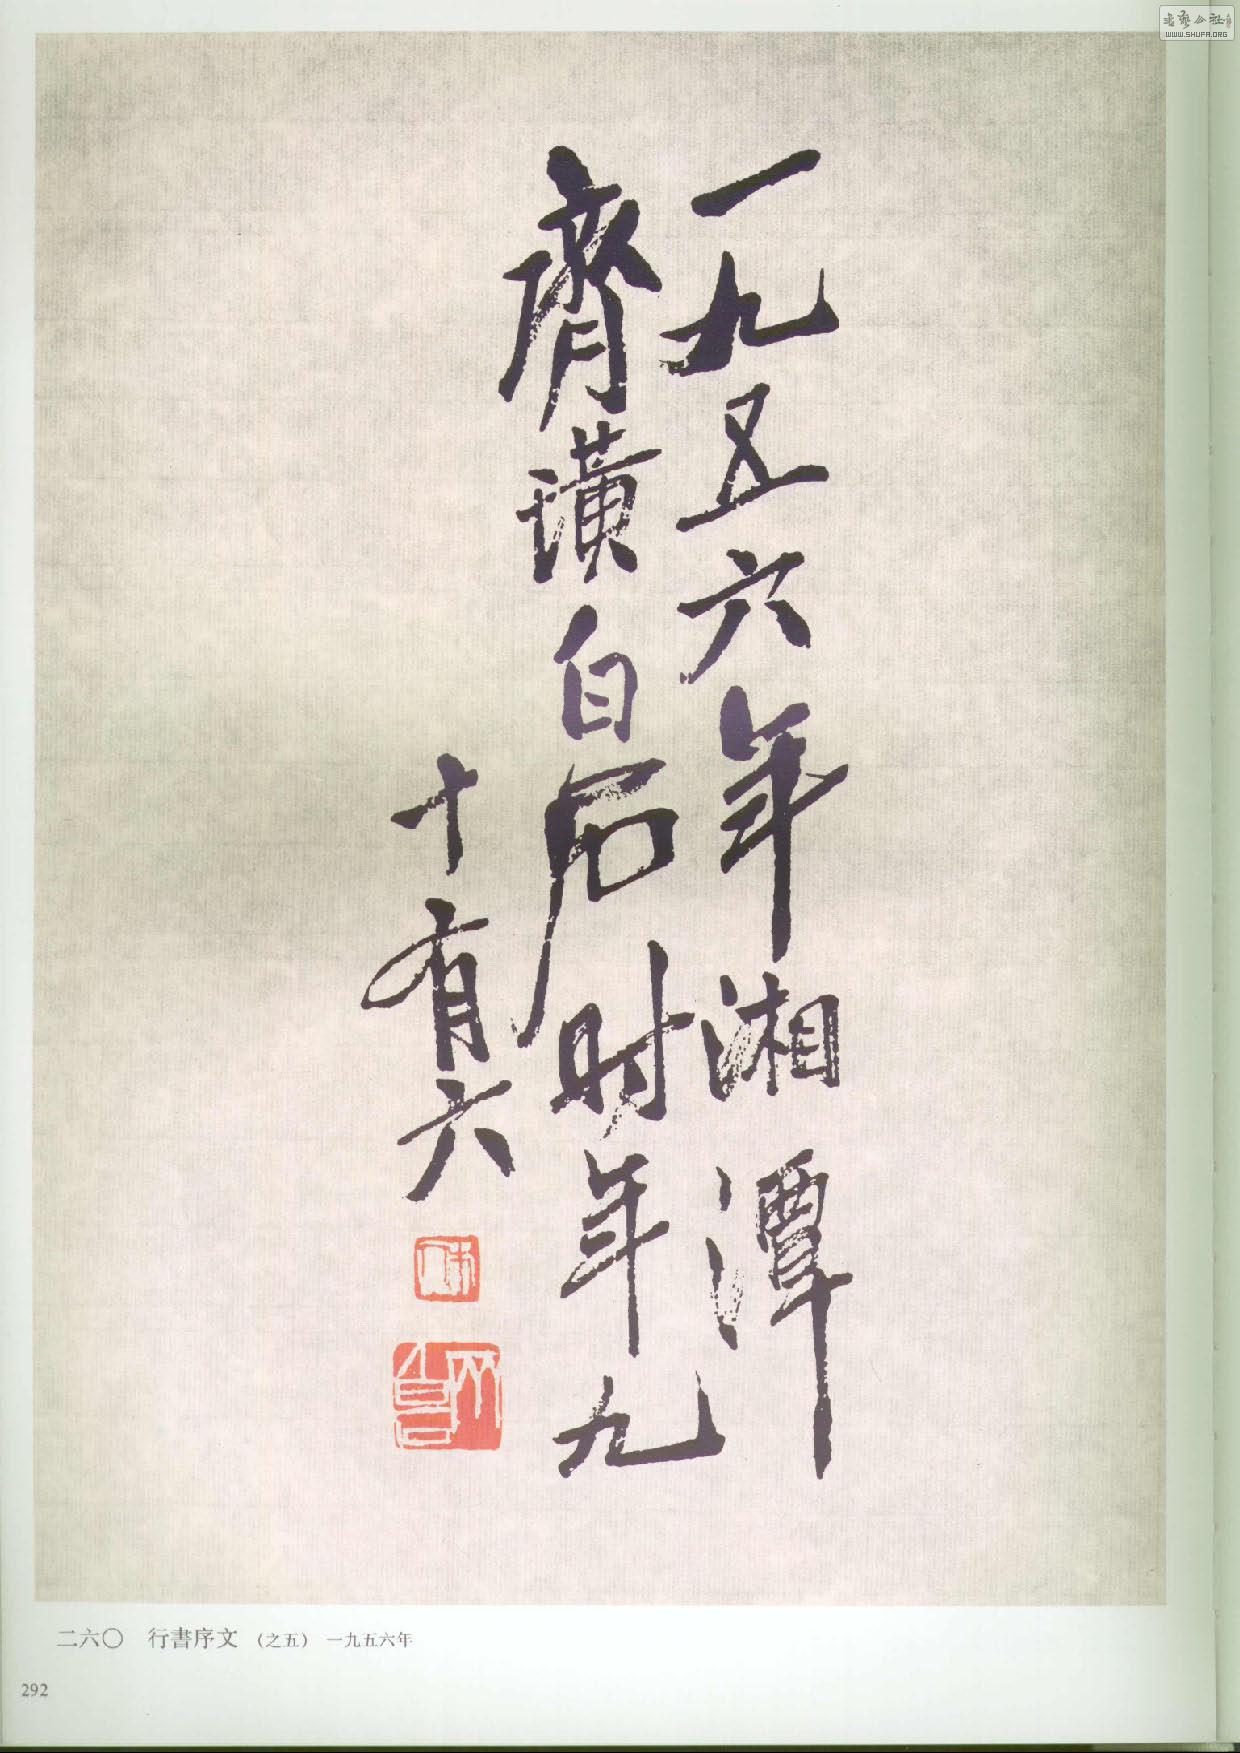 一九五六年湘潭
齊璜白石时年九
十有六
二六〇 行書序文 (之五) 一九五六年
292
WWW.SHUFA.ORG